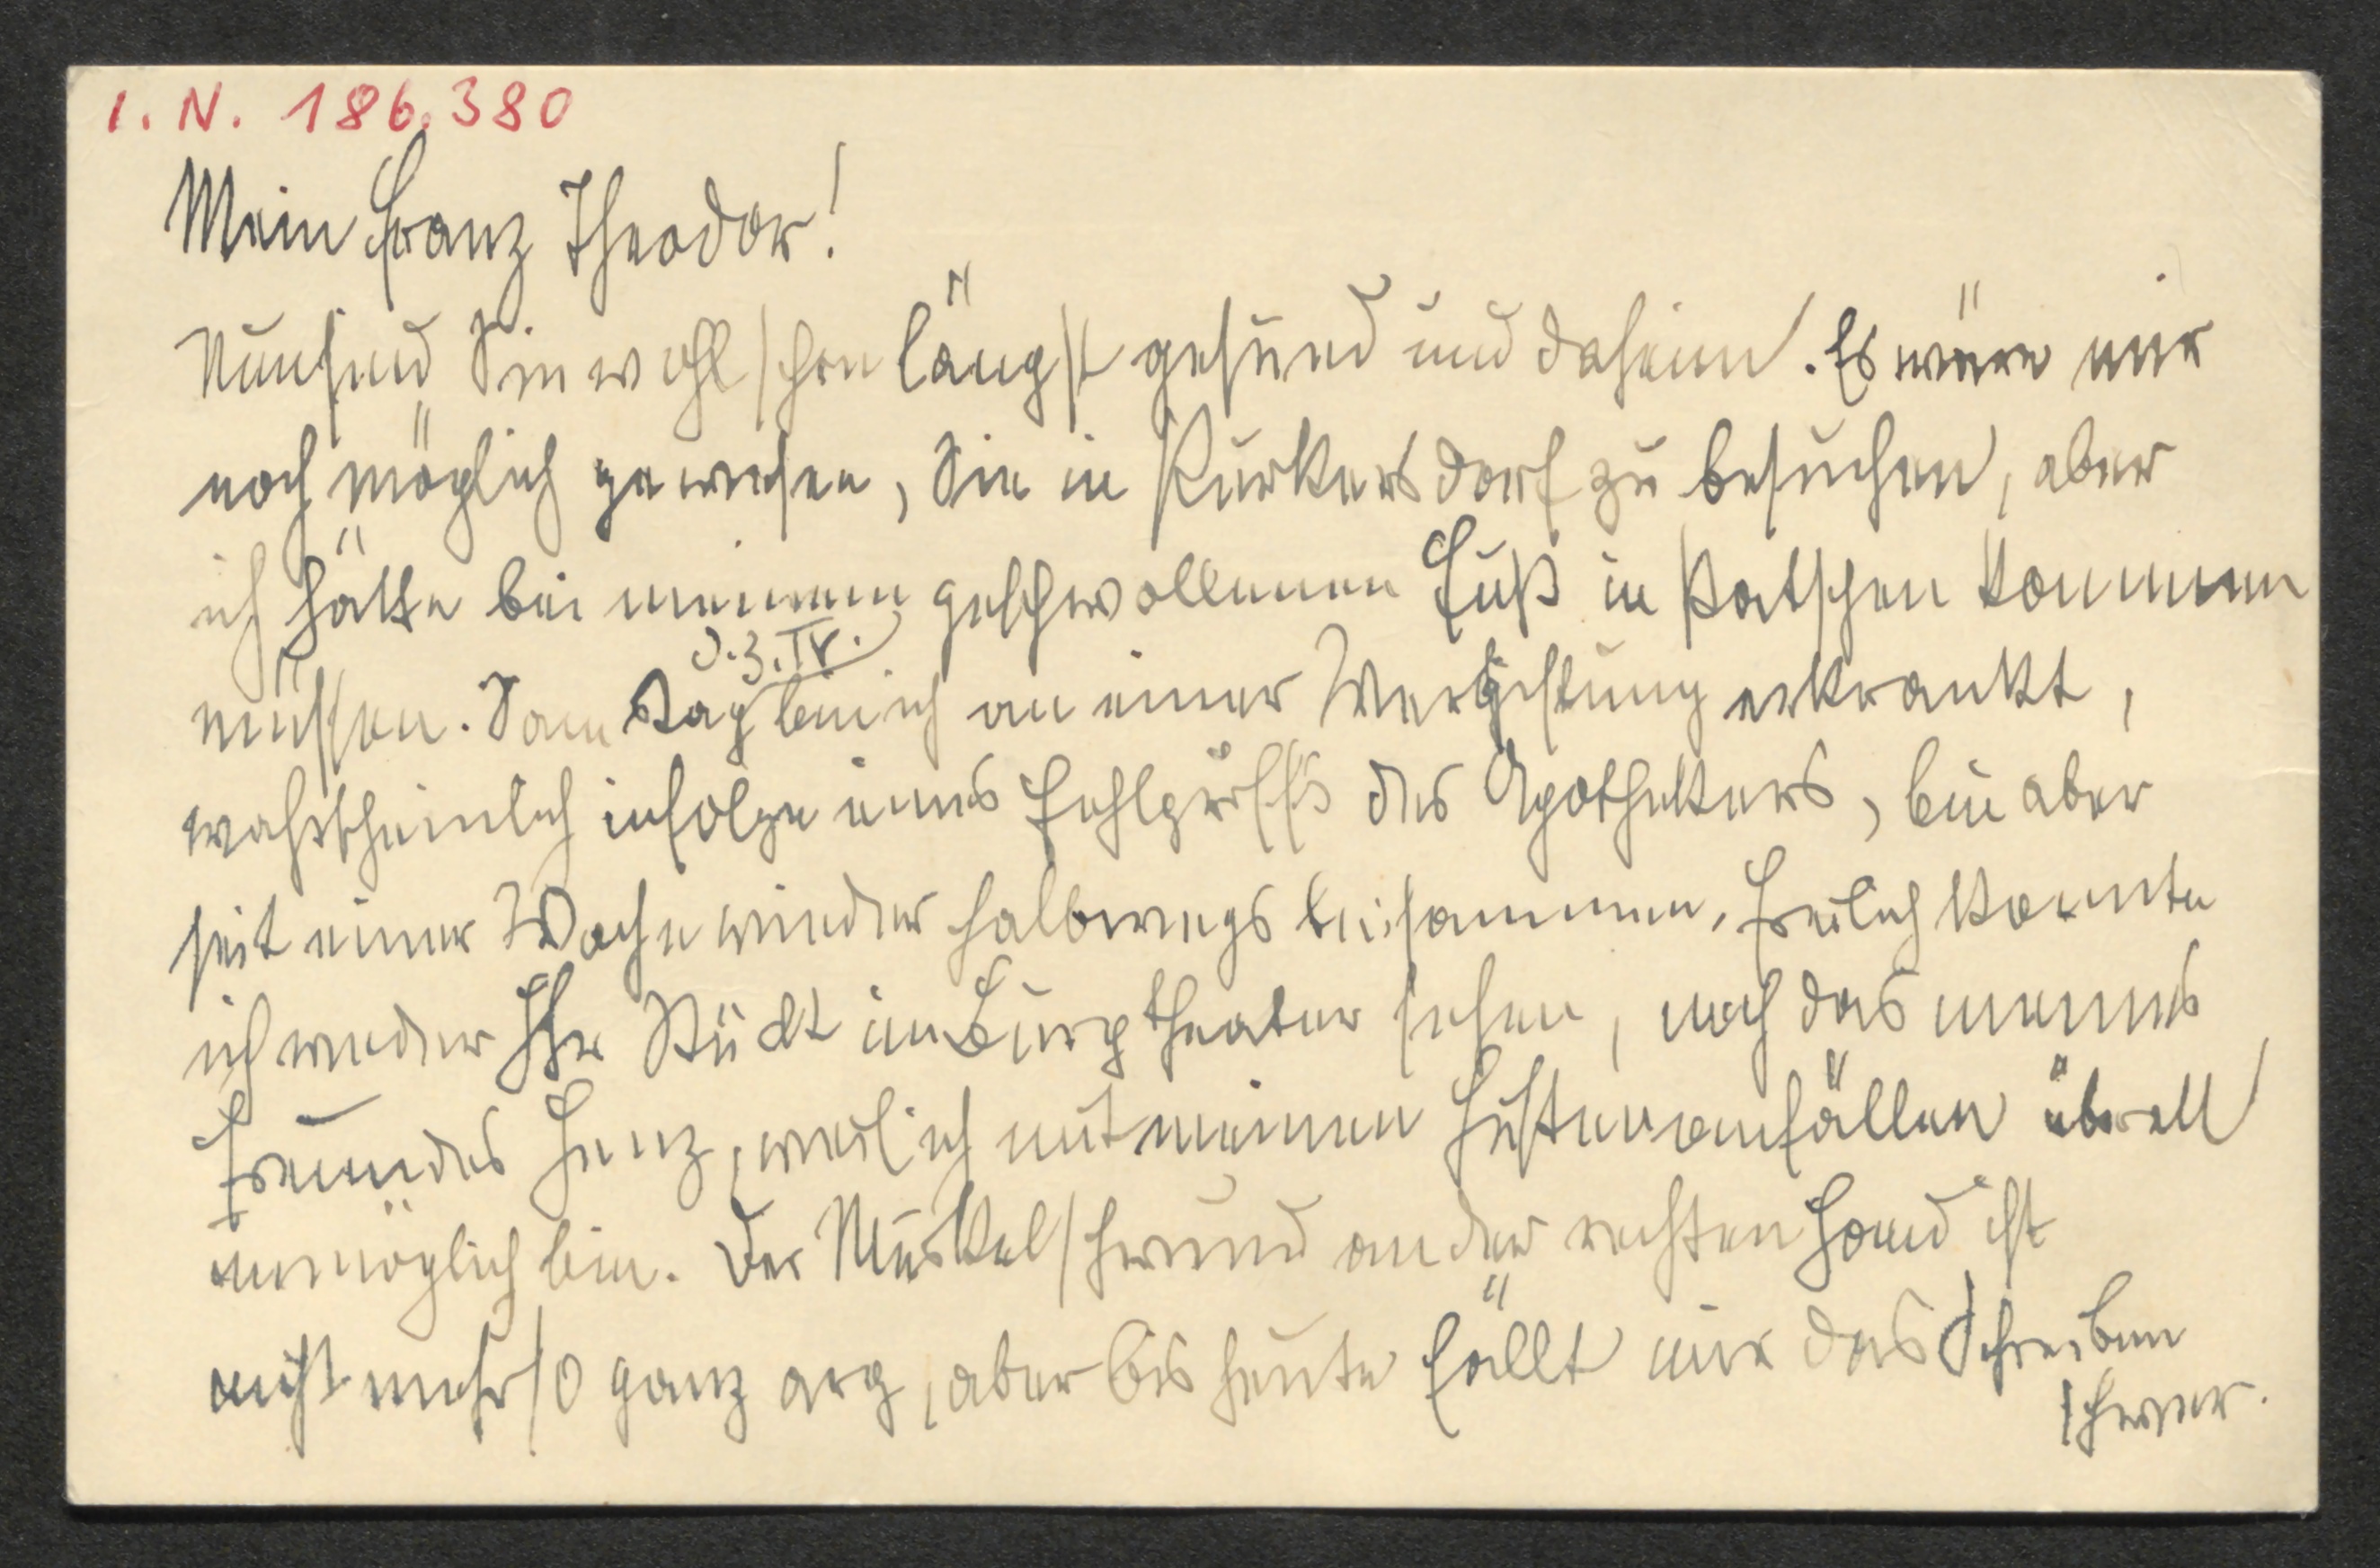 I. N. 186.380
Mein Franz Theodor!
Nun sind Sie wohl schon längst gesund und daheim. Es wäre mir
noch möglich gewesen, Sie in Purkersdorf zu besuchen, aber
ich hätte bei meinem geschwollenen Fuß in Patschen kommen
müssen. Dann Tag bin ich an einer Vergiftung erkrankt,
d. 3. IV.
wahrscheinlich infolge eines Fehlgriffs des Apothekers, bin aber
seit einer Woche wieder halbwegs beisammen. Freilich konnte
ich weder Ihr Stück im Burgtheater sehen, noch das meines
Freundes Henz, weil ich mit meinen Hustenanfällen überall
unmöglich bin. Der Muskelschwund an der rechten Hand ist
nicht mehr so ganz arg, aber bis heute fällt mir das Schreiben
schwer.